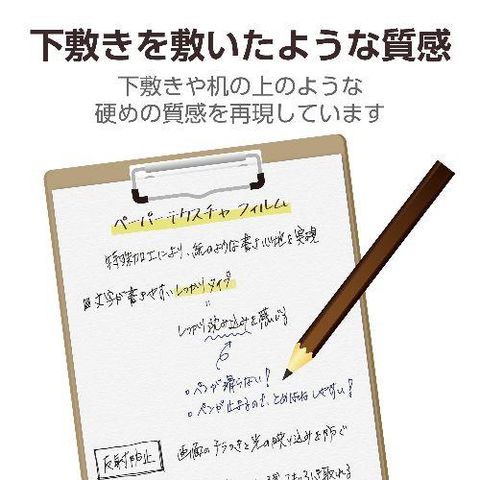 下敷きを敷いたような質感
下敷きや机の上のような
硬めの質感を再現しています
ペーパーテクスチャフィルム
特殊加工により、紙のような書き心地を実現
文字が書きやすいしっかりタイプ
しっかり
を感じる
ペンが滑らない!
ペンが止まるので、とめはねしやすい!
反射防止
画面のチラつきと光の映り込みを防ぐ